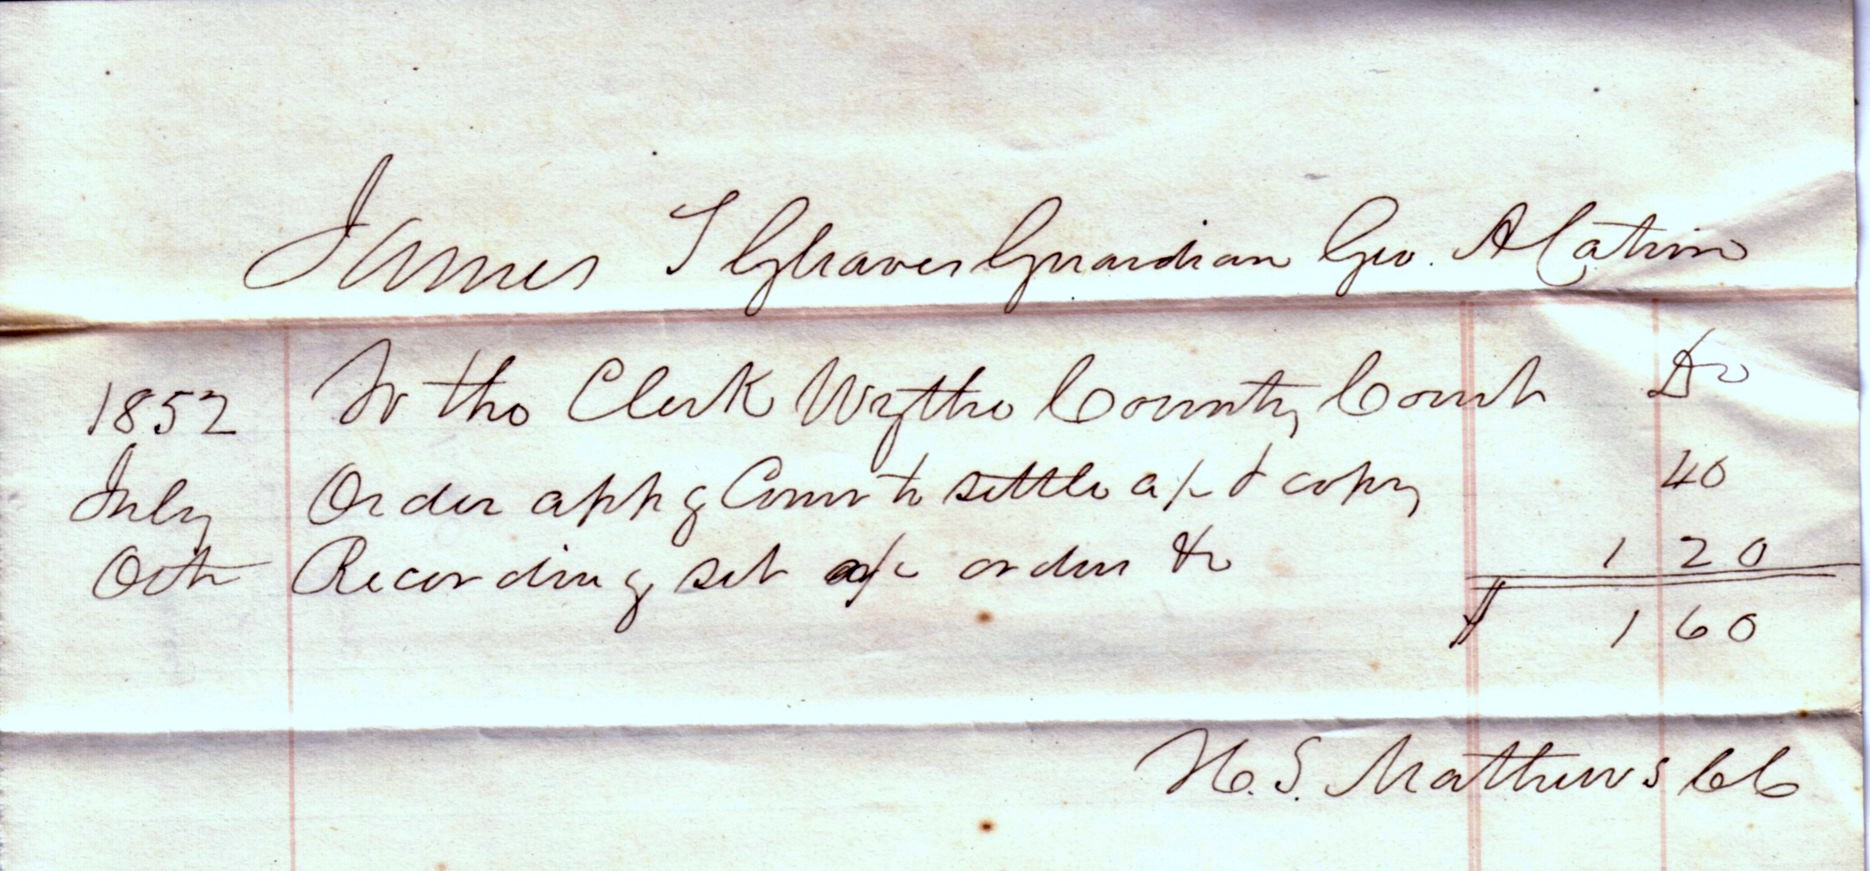 James T Graves Guardian Geo. A Catron
1852 To the Clerk Wythe County Court Dr
July Order appg Comr to settle a/c & copy 40
Oct Recording set a/c order &c 1 20
$ 1 60
H. S. Mathews CC